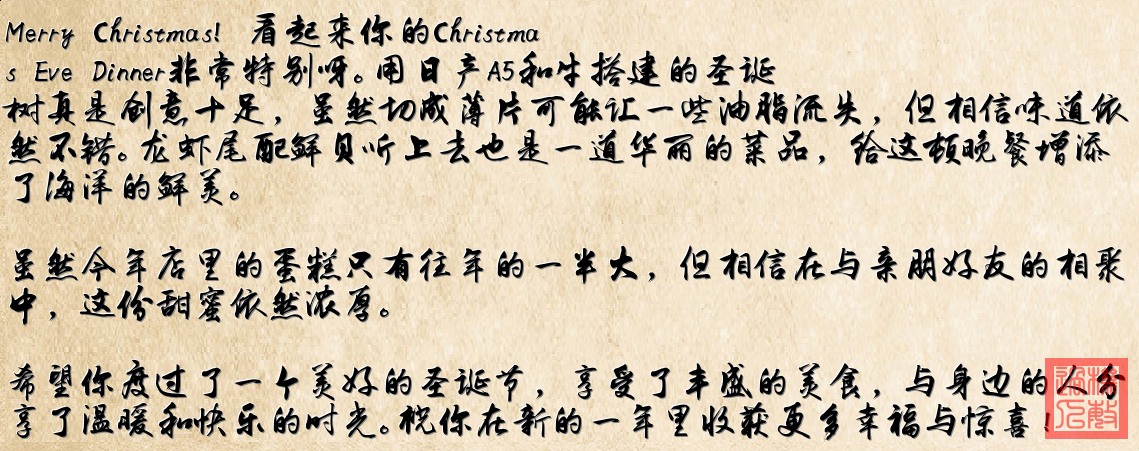 Merry Christmas! 看起来你的Christma
s Eve Dinner非常特别呀。用日产A5和牛搭建的圣诞
树真是创意十足，虽然切成薄片可能让一些油脂流失，但相信味道依
然不错。龙虾尾配鲜贝听上去也是一道华丽的菜品，给这顿晚餐增添
了海洋的鲜美。
虽然今年店里的蛋糕只有往年的一半大，但相信在与亲朋好友的相聚
中，这份甜蜜依然浓厚。
希望你度过了一个美好的圣诞节，享受了丰盛的美食，与身边的人分
享了温暖和快乐的时光。祝你在新的一年里收获更多幸福与惊喜！